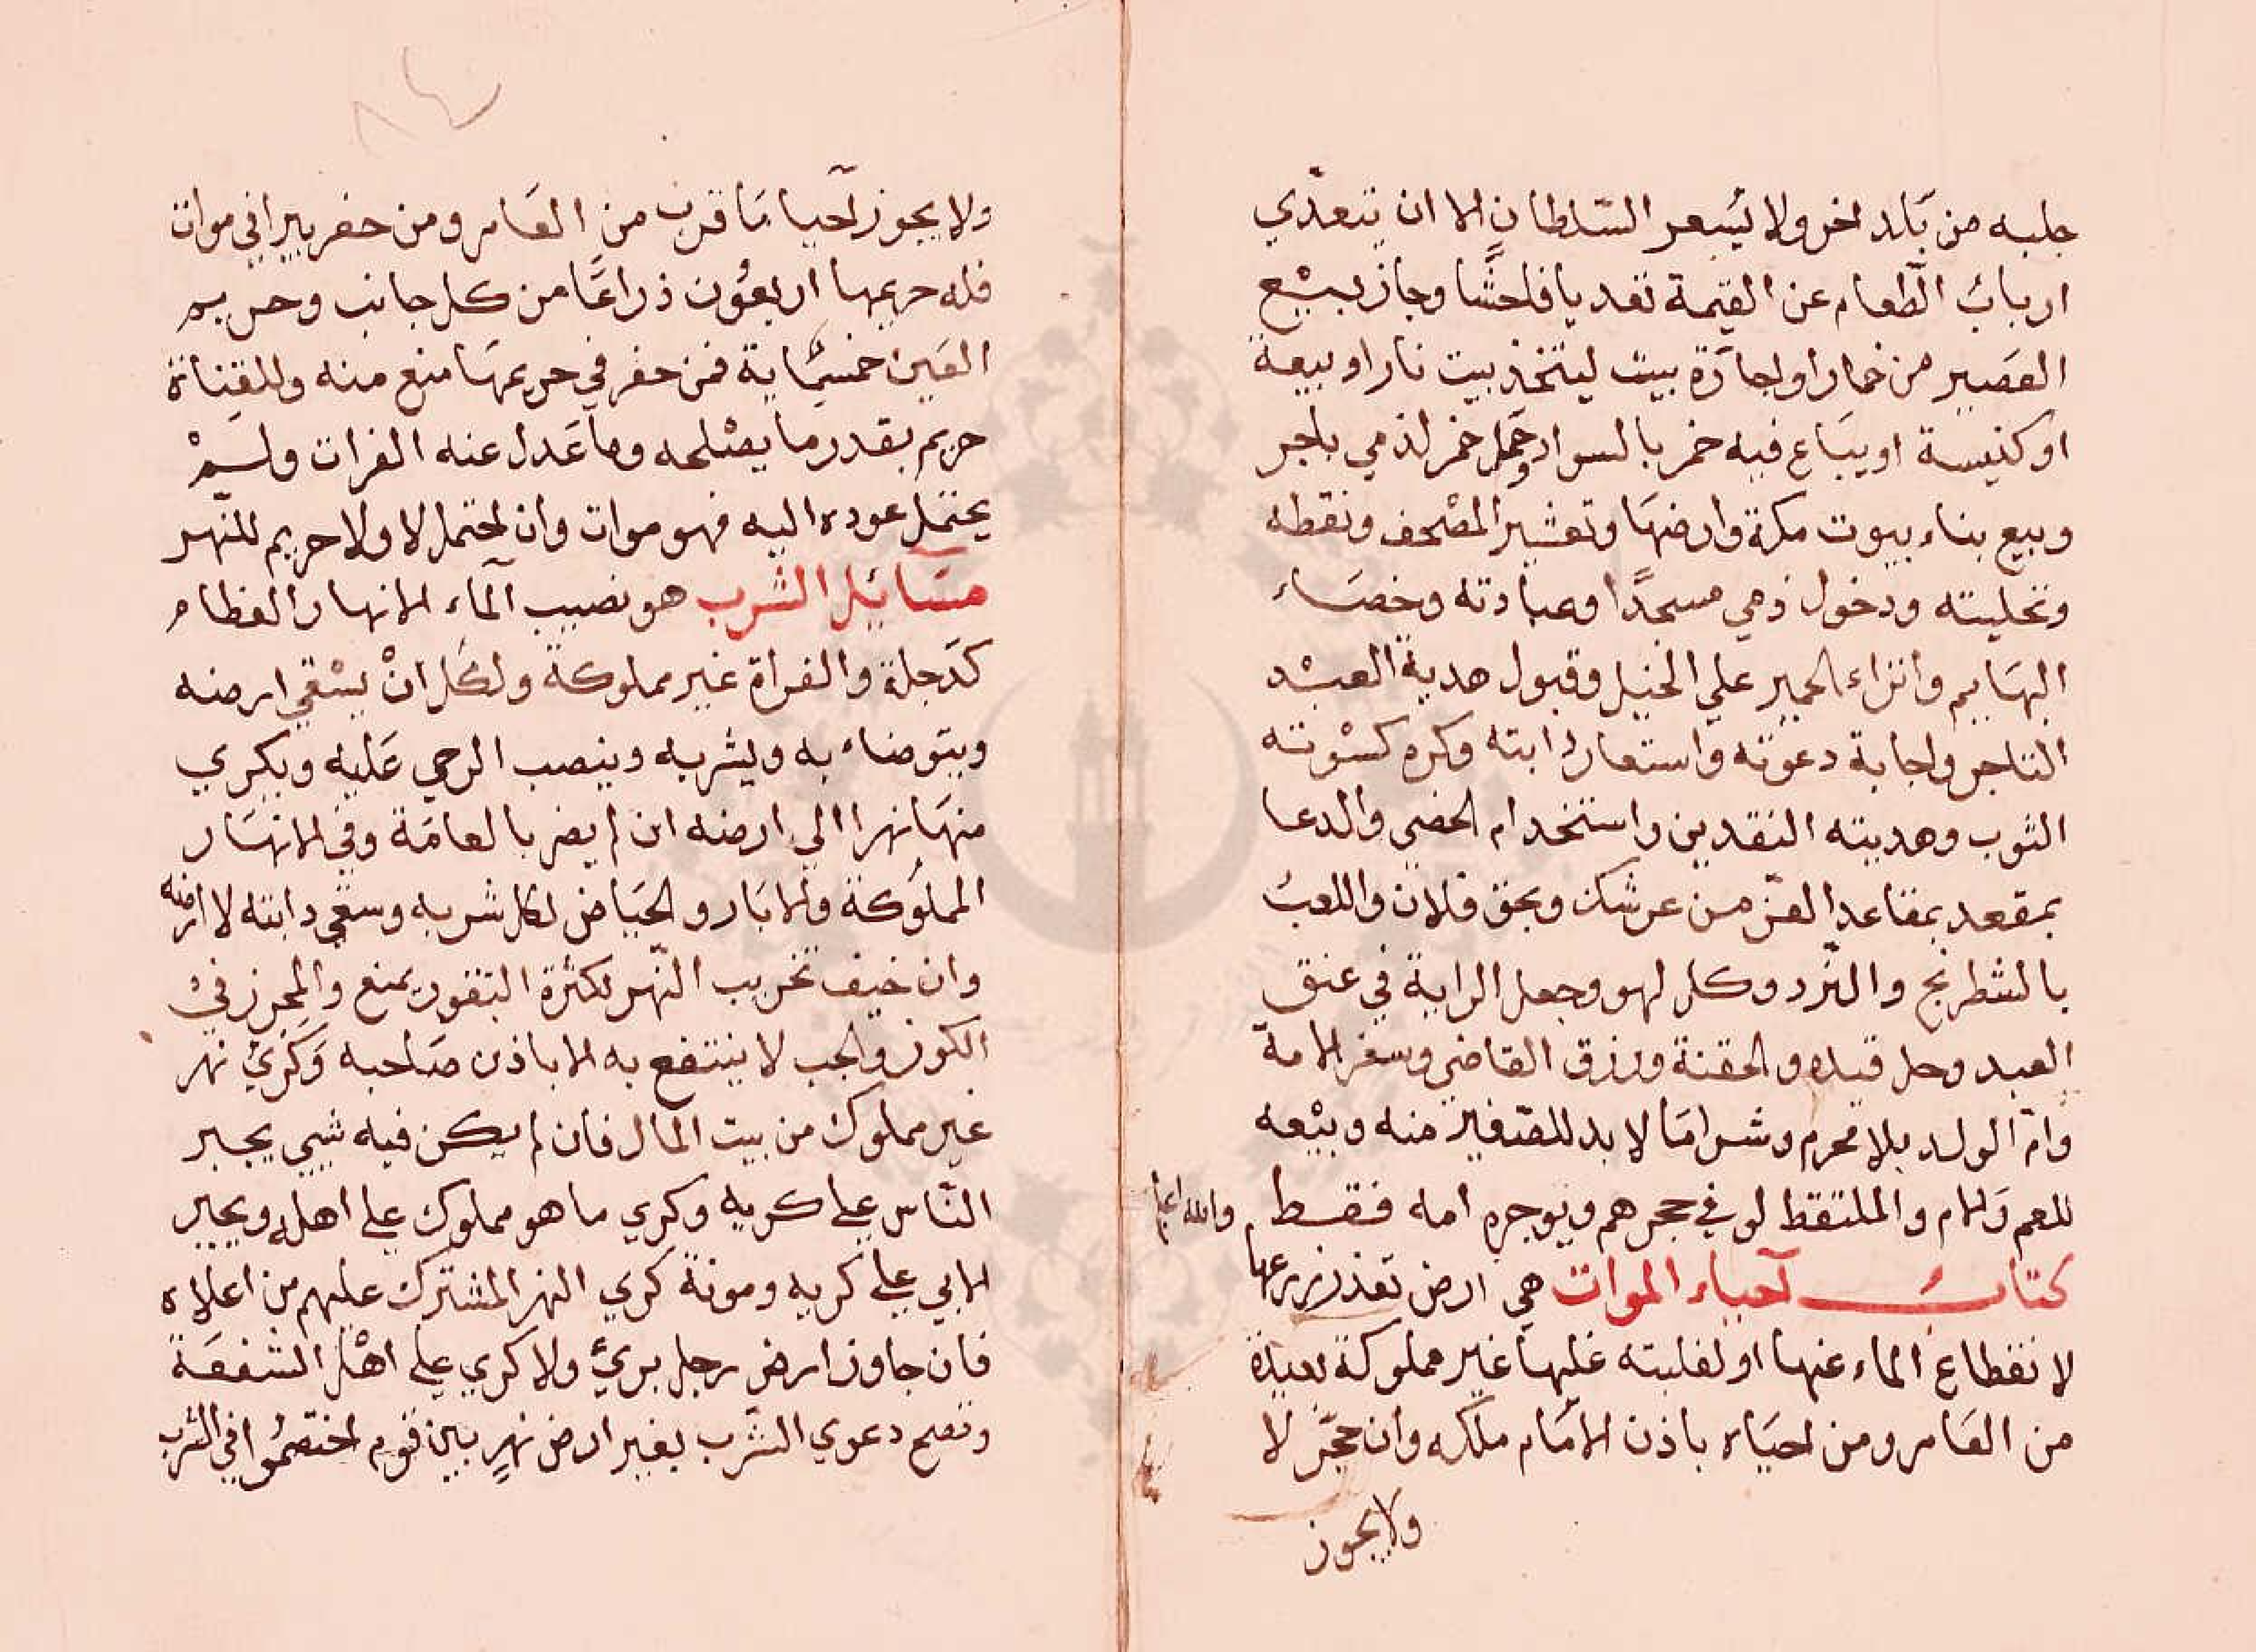 جلبه من بلد اخر ولا يسعر السلطان الا ان يتعدي
ارباب الطعام عن القيمة تعديا فاحشا وجاز بيع
العصير من خمار واجارة بيت ليتخذ بيت نار او بيعة
او كنيسة او يباع فيه خمر بالسواد وحمل خمر لذمي باجر
وبيع بناء بيوت مكة وارضها وتعشير المصحف ونقطه
وتحليته ودخول ذمي مسجدا وعيادته وخصاء
البهايم وانزاء الحمير علي الخيل وقبول هدية العبد
التاجر واجابة دعوته واستعار دابته وكره كسوته
الثوب وهديته النقدين واستخدام الخصي والدعا
بمقعد بمقاعد العز من عرشك وبحق فلان واللعب
بالشطرنج والنرد وكل لهو وجعل الراية في عنق
العبد وحل قيده والحقنة ورزق القاضي وسفر الامة
وام الولد بلا محرم وشرا ما لا بد للصغير منه وبيعه
للعم والام والملتقط لو في حجرهم ويوجره امه فقط والله اعلم
كتاب احياء الموات هي ارض تعذر زرعها
لانقطاع الماء عنها او لغلبته عليها غير مملوكة بعيدة
من العامر ومن احياه باذن الامام ملكه وان حجر لا
ولا يجوز
ولا يجوز احيا ما قرب من العامر ومن حفر بيرا في موات
فله حريمها اربعون ذراعا من كل جانب وحريم
العين خمسماية فمن حفر في حريمها منع منه وللقناة
حريم بقدر ما يصلحه وما عدل عنه الفرات ولم
يحتمل عوده اليه فهو موات وان احتمل لا ولا حريم للنهر
مسايل الشرب هو نصيب الماء الانهار العظام
كدجلة والفراة غير مملوكة ولكل ان يسقي ارضه
ويتوضاء به ويشربه وينصب الرحي عليه ويكري
منها نهرا الي ارضه ان لم يضر بالعامة وفي الانهار
المملوكة والابار والحياض لكل شربه وسقي دابته لا ارضه
وان خيف تخريب النهر لكثرة البقور يمنع والمحرز في
الكوز والجب لا ينتفع به الا باذن صاحبه وكري نهر
غير مملوك من بيت المال فان لم يكن فيه شيي يجبر
الناس علي كريه وكري ما هو مملوك علي اهله ويجبر
الابي علي كريه ومونة كري النهر المشترك عليهم من اعلاه
فان جاوز ارض رجل بريء ولا كري علي اهل الشفعة
وتصح دعوي الشرب بغير ارض نهر بين قوم اختصموا في الشرب